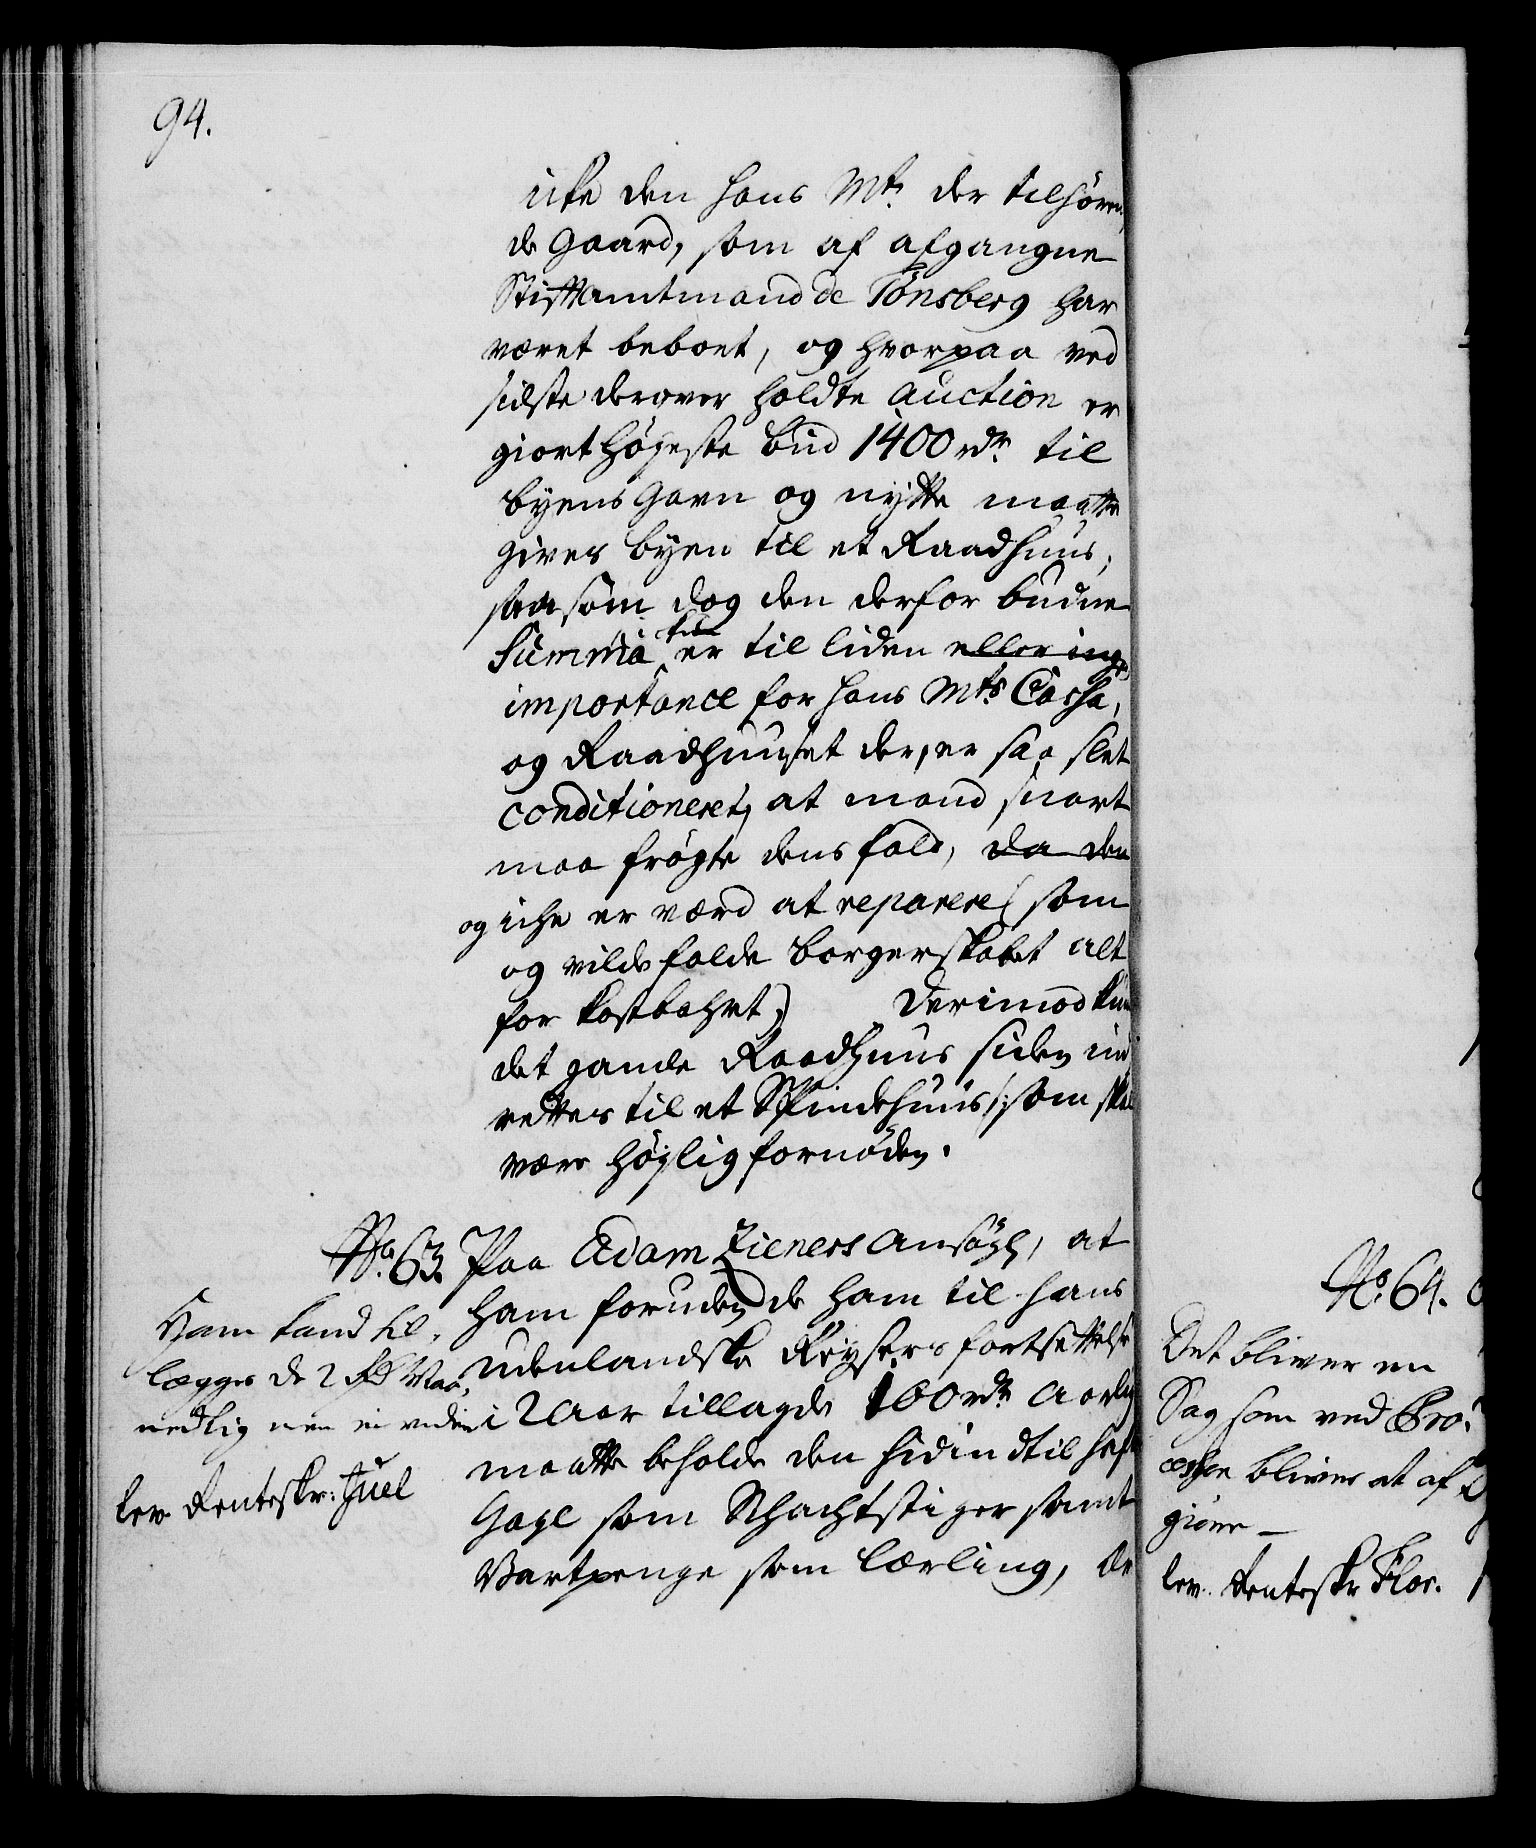 94.
icke den Hans Mt. der tilhøren,
de Gaard, som af afgangne
Stiftamtmand de Tønsberg har
været beboet, og hvorpaa ved
sidste derover holdte Auction er
giort høyeste bud 1400 rdr. til
byens Gavn og nytte maatte
gives byen til et Raadhuus,
saasom dog den derfor budne
Summa er til liden eller ingen
importance for Hans Mts Cassa,
og Raadhuuset der, er saa slet
conditioneret, at mand snart
maa frögte dens fald, da den
og iche er værd at reparere (som
og vilde falde borgerskabet alt
for kostbahrt) Derimod kun
det gamle Raadhuus siden ind
rettes til et Spindehuus /: som skal
være høylig fornøden.
No. 63. Paa Adam Zieners Ansøgn, at
ham foruden de ham til hans
udenlandske Reysers fortsettelse
i 2 Aar tillagde 100 rdr. Aarlig
maatte beholde den hidindtil hafte
Gage som Schachtstiger samt
Vartpenge som Lærling, de
Ham kand til,
lægges de 2 rd Maa,
nedlig men ei videre
lev. Renteskr: Juel
No. 64.
Det bliver en
Sag som ved Pro,
cessen bliver at af,
giøre –
lev. Renteskr Flor.